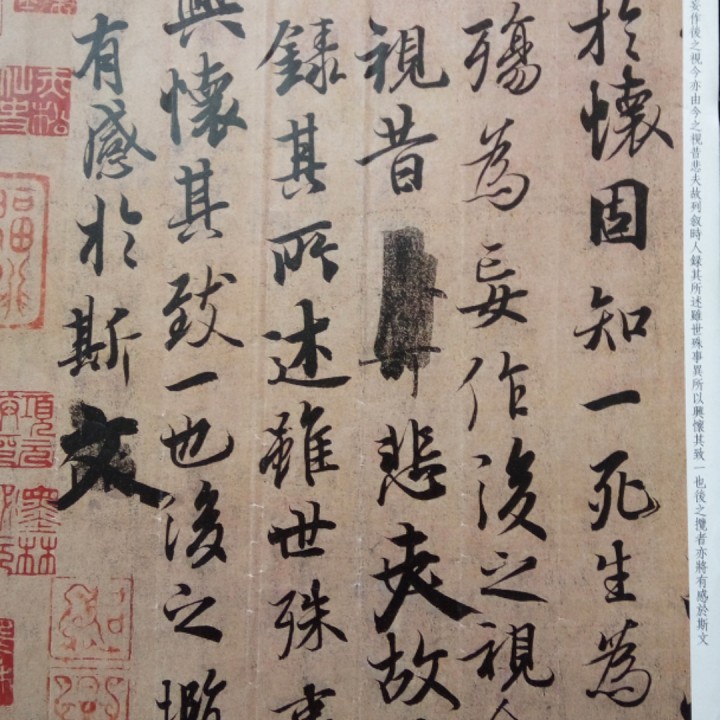 妄作後之視今亦由今之視昔悲夫故列敘時人録其所述雖世殊事異所以興懷其致一也後之攬者亦將有感於斯文
於懷固知一死生為
殤為妄作後之視今
視昔悲夫故
録其所述雖世殊事
興懷其致一也後之攬
有感於斯文
墨林